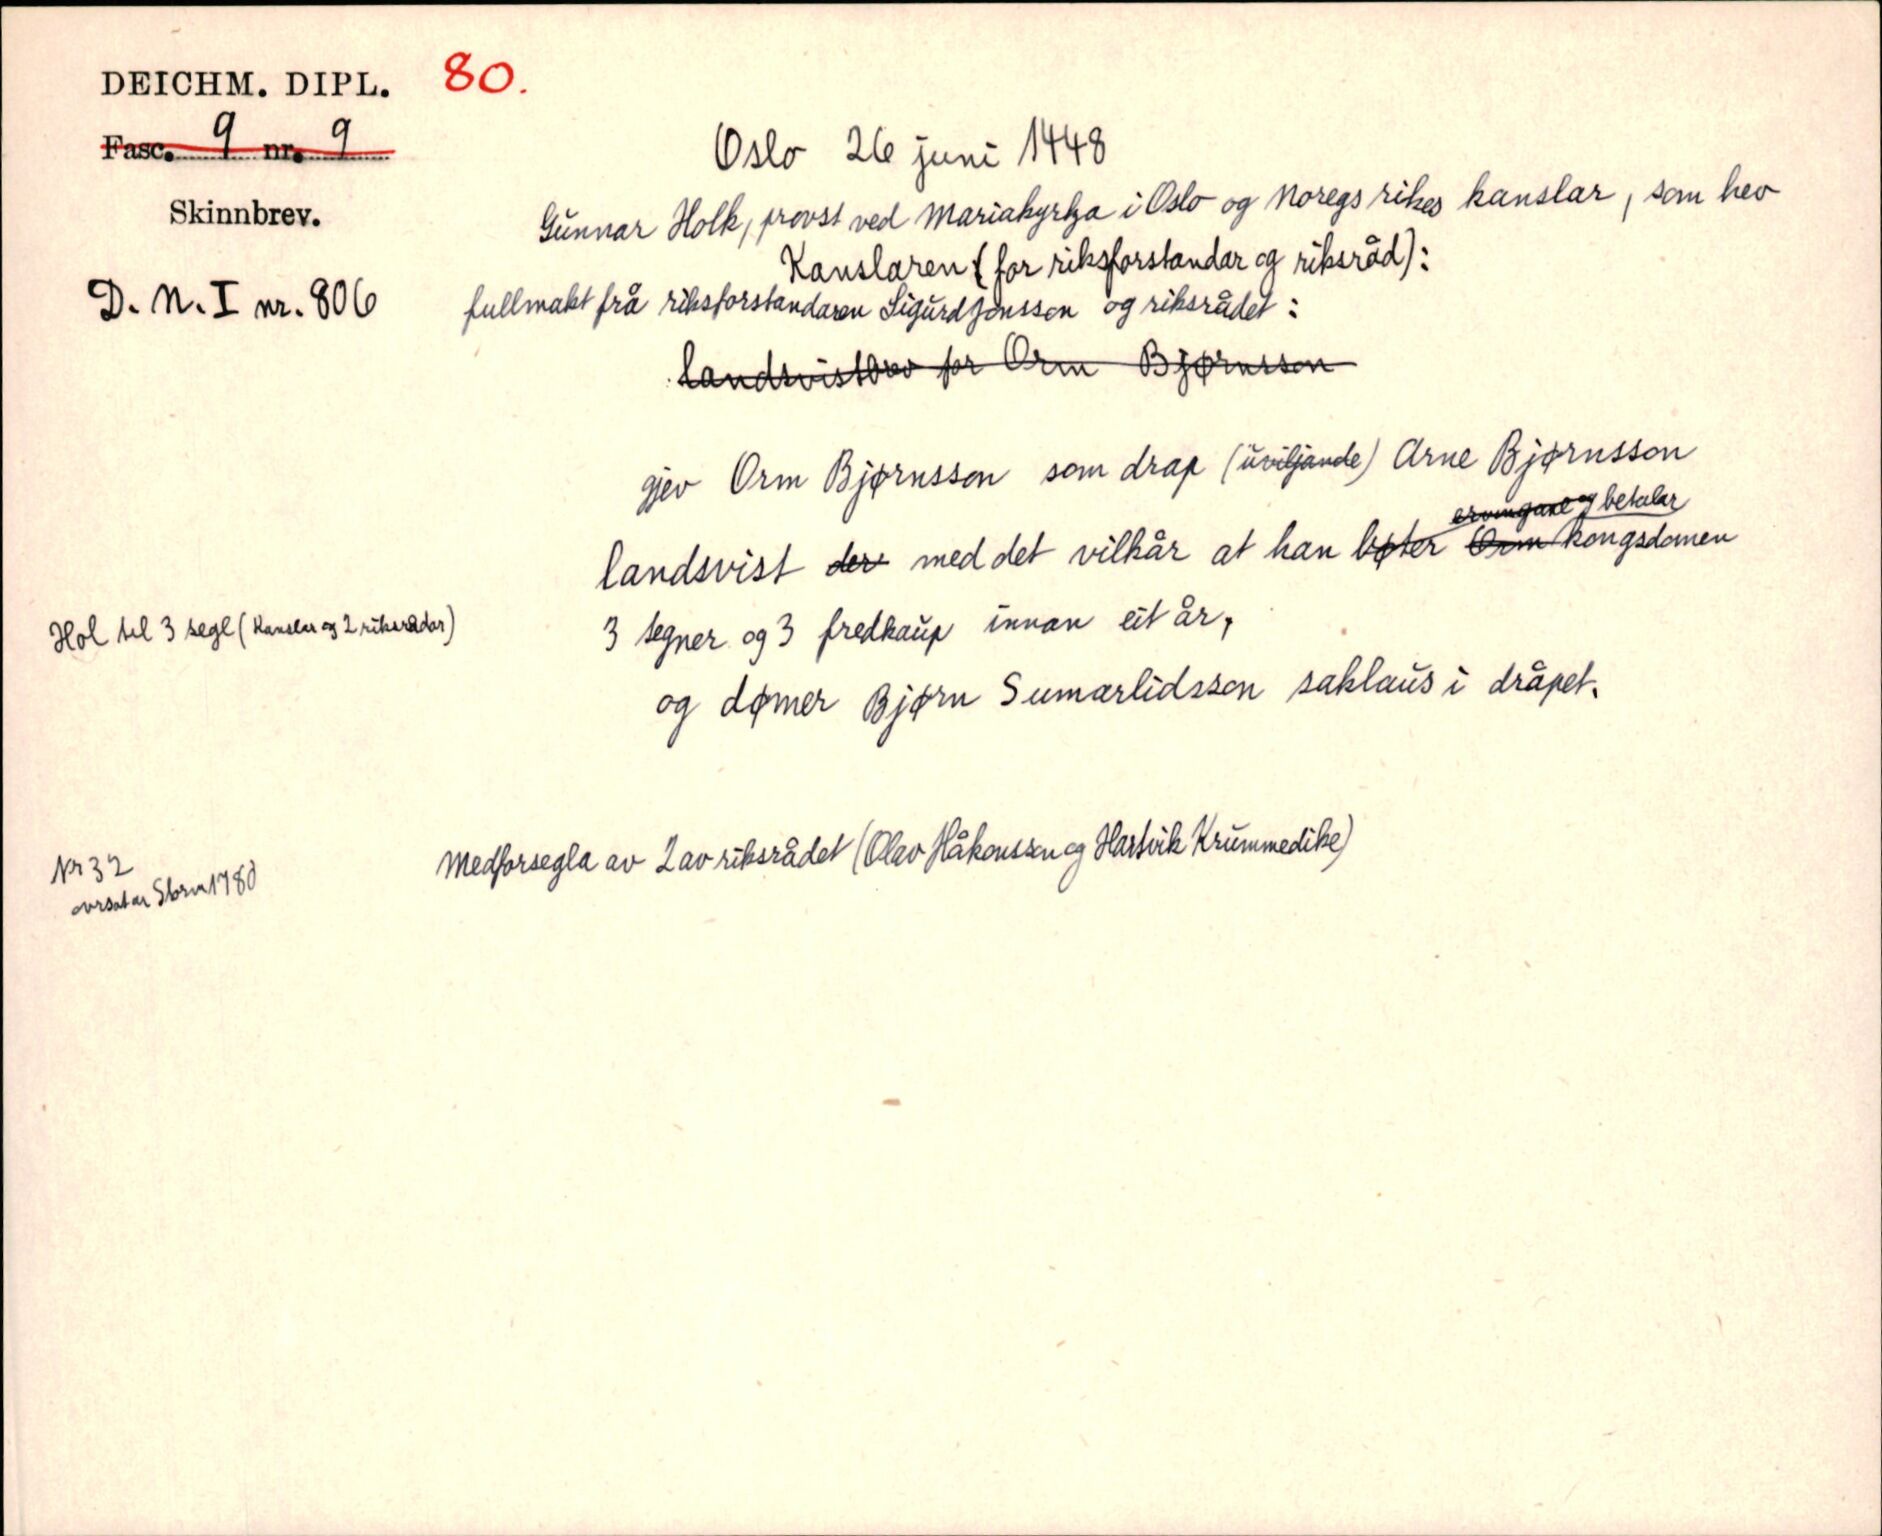 DEICHM. DIPL. 80.
Fasc. 9 nr. 9
Skinnbrev.
D. N. I nr. 806
Oslo 26 juni 1448
Gunnar Holk, provst ved Mariakyrkja i Oslo og Noregs rikes kanslar, som hev
Kanslaren (for riksforstandar og riksråd):
fullmakt frå riksforstandaren Sigurd Jonsson og riksrådet:
landsvistbrev for Orm Bjørnsson
gjev Orm Bjørnsson som drap (uviljande) Arne Bjørnsson
ervingane og betalar
landsvist der med det vilkår at han bøter Orm kongsdomen
Hol til 3 segl (Kanslar og 2 riksrådar)
3 tegner og 3 fredkaup innan eit år,
og dømer Bjørn Sumarlidsson saklaus i dråpet.
Medforsegla av 2 av riksrådet (Olav Håkonsson og Hartvik Krummedike)
Nr 32
Storm 1780